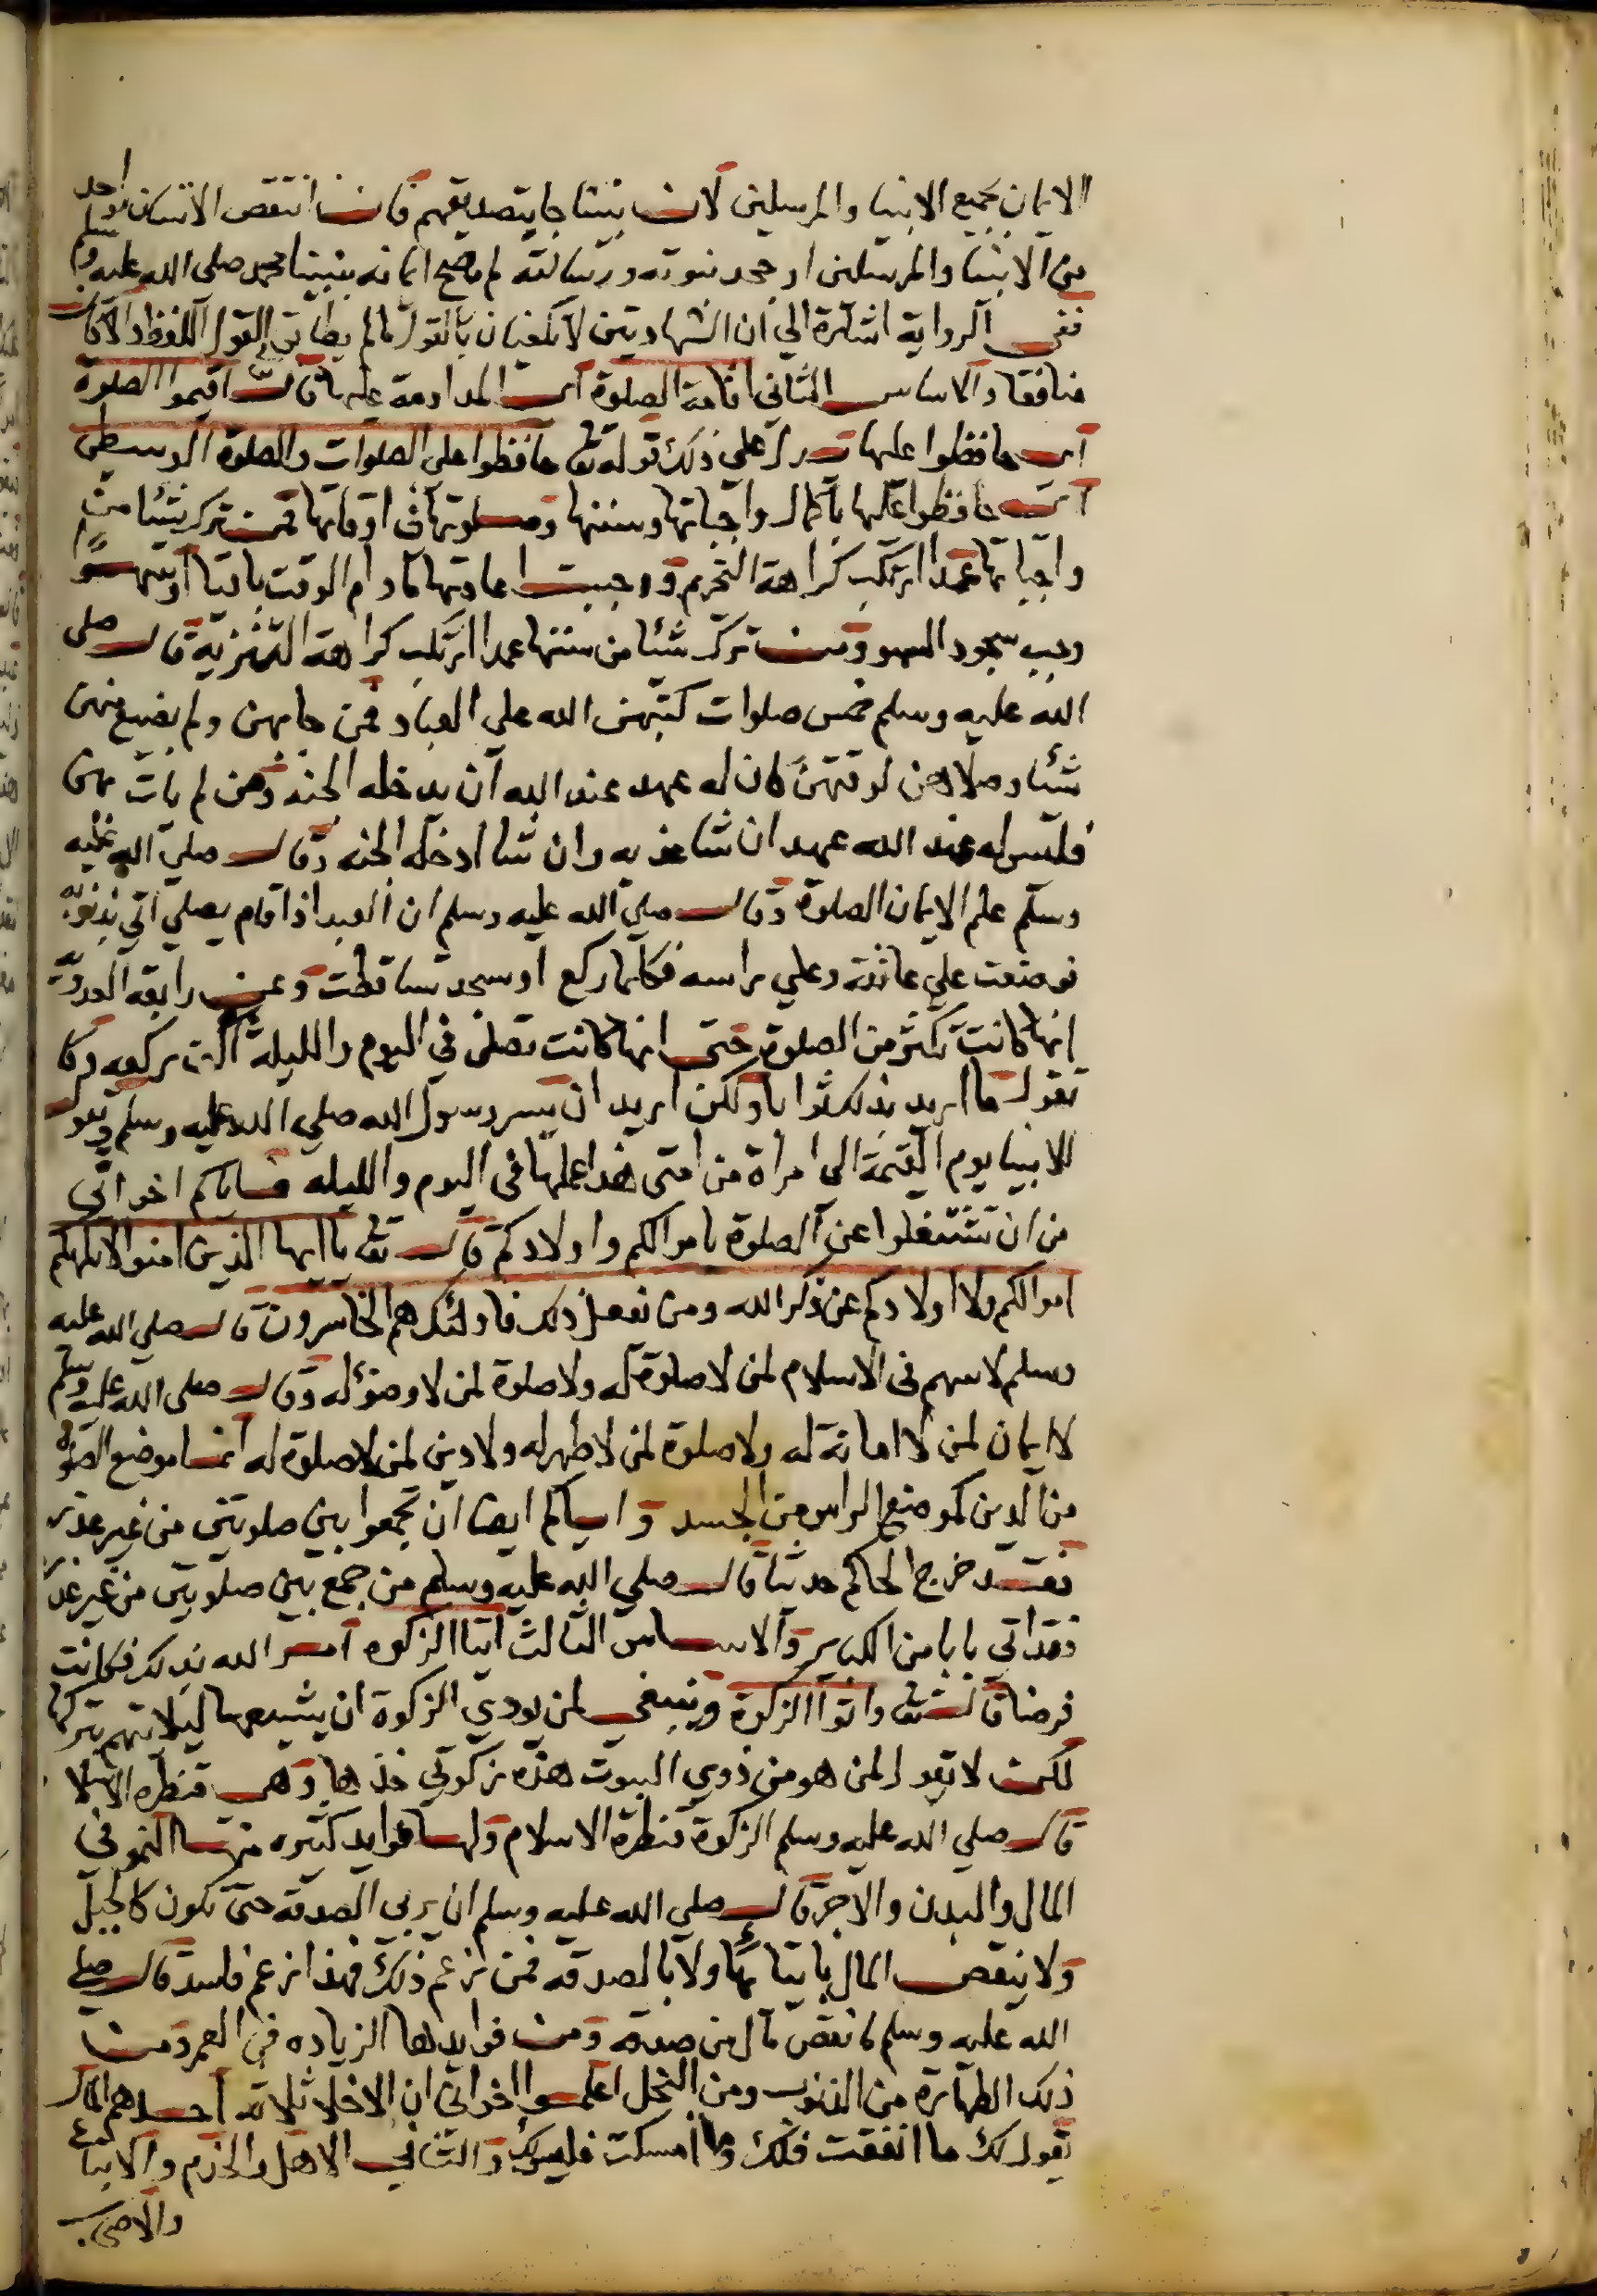 الايمان بجميع الانبيا والمرسلين لان نبينا جا بتصديقهم فان انتقص الانسان بواحد
من الانبيا والمرسلين او جحد نبوته ورسالته لم يصح ايمانه بنبينا محمد صلى الله عليه وسلم
ففى الرواية اشارة الي ان الشهادتين لا تكفيان بالقول ما لم يطابق القول اللفظ والا كان
منافقا والاساس الثاني اقامة الصلوة اى المداومة عليها قال تع اقيموا الصلوة
اى حافظوا عليها يدل على ذلك قوله تع حافظوا على الصلوات والصلوة الوسطى
اى حافظوا عليها باكمال واجباتها وسننها وصلوتها فى اوقاتها فمن ترك شيئا من
واجباتها عمدا ارتكب كراهة التحريم ووجبت اعادتها مادام الوقت باقيا او سهوًا
وجب سجود السهو ومن ترك شيئا من سننها عمدا ارتكب كراهة التنزيه قال صلى
الله عليه وسلم خمس صلوات كتبهن الله على العباد فمن جا بهن ولم يضيع منهن
شيئا وصلاهن لوقتهن كان له عهد عند الله ان يدخله الجنه ومن لم يات بهن
فليس له عند الله عهد ان شا عذبه وان شا ادخله الجنه وقال صلي الله عليه
وسلم علم الايمان الصلوة وقال صلى الله عليه وسلم ان العبد اذا قام يصلي اتي بذنوبه
فوضعت علي عاتقه وعلي راسه فكلما ركع او سجد تساقطت وعن رابعه العدويه
انها كانت تكثر من الصلوة حتى انها كانت تصلى في اليوم والليلة الف ركعه وكا
تقول ما اريد بذلك ثوابا ولكن اريد ان يسر رسول الله صلي الله عليه وسلم ويقول
للانبيا يوم القيمة الى امراة من امتى هذا عملها فى اليوم والليله فاياكم اخوانى
من ان تشتغلوا عن الصلوة باموالكم واولادكم قال تع يا ايها الذين امنوا لا تلهكم
اموالكم ولا اولادكم عن ذكر الله ومن يفعل ذلك فاولئك هم الخاسرون قال صلي الله عليه
وسلم لا سهم فى الاسلام لمن لا صلوة له ولا صلوة لمن لا وضؤ له وقال صلى الله عليه وسلم
لا ايمان لمن لا امانة له ولا صلوة لمن لا طهر له ولا دين لمن لا صلوة له انما موضع الصلوة
من الدين كموضع الراس من الجسد واياكم ايضا ان تجمعوا بين صلوتين من غير عذر
فقد خرج الحاكم حديثا قال صلي الله عليه وسلم من جمع بين صلوتين من غير عذر
فقد اتى بابا من الكباير والاساس الثالث ايتا الزكوه امر الله بذلك فكانت
فرضا قال تع واتوا الزكوة وينبغى لمن يودي الزكوة ان يشيعها ليلا يتهم بتركها
لكن لا يقول لمن هو من ذوي البيوت هذه زكوتي خذها وهى قنطره الاسلا
قال صلي الله عليه وسلم الزكوة قنطرة الاسلام ولها فوايد كثيره منها النمو في
المال والبدن والاجر قال صلي الله عليه وسلم ان يربي الصدقة حتى تكون كالجبل
ولا ينقص المال بايتائها ولا بالصدقه فمن زعم ذلك فهذا زعم فاسد قال صلي
الله عليه وسلم ما نقص مال من صدقه ومن فوايدها الزياده في العمر ومن
ذلك الطهارة من الذنوب ومن البخل اعلموا اخوانى ان الاخلا ثلاثه احدهم المال
يقول لك ما انفقت فلك وما امسكت فليس لك والثاني الاهل والخدم والاتباع
والاصحاب